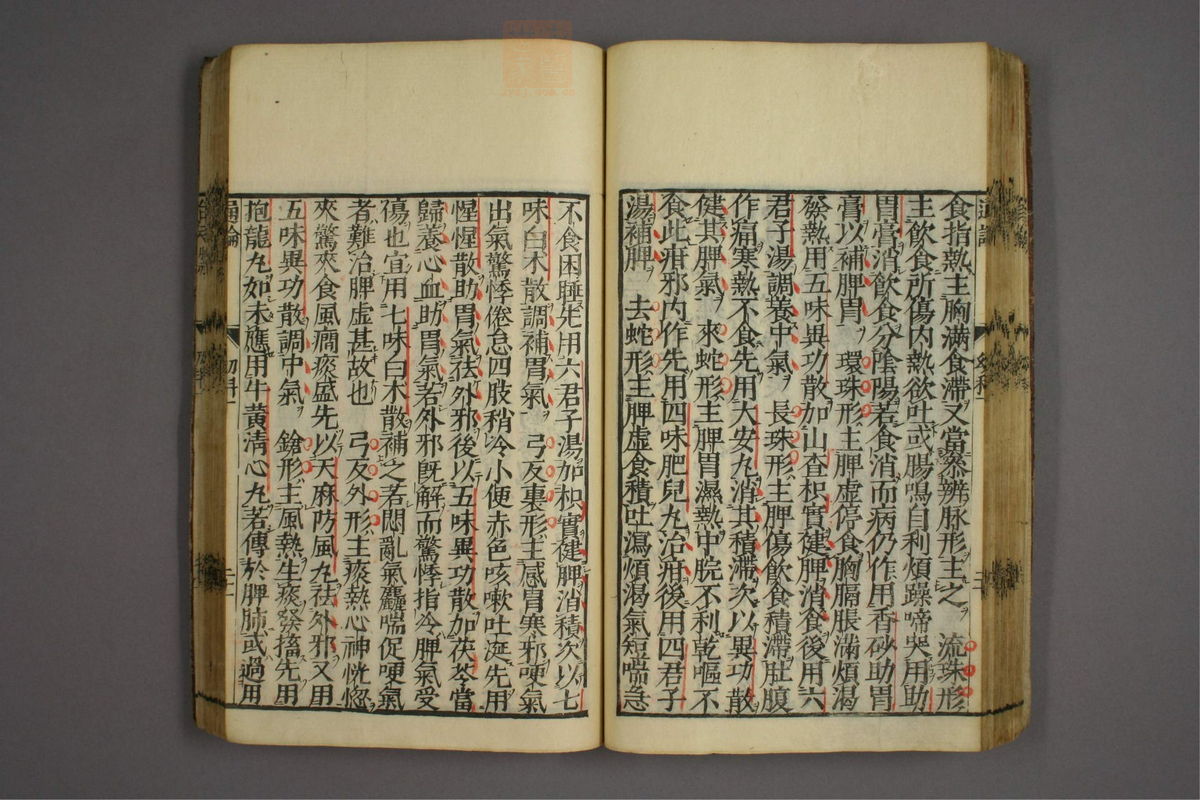 食指熱主胸滿食滯又當叅辨脉形主之　流珠形
主飲食所傷內熱欲吐或腸鳴自利煩躁啼哭用助
胃膏消飲食分陰陽若食消而病仍作用香砂助胃
膏以補脾胃　環珠形主脾虛停食胸膈脹滿煩渴
發熱用五味異功散加山查枳實健脾消食後用六
君子湯調養中氣　長珠形主脾傷飲食積滯肚腹
作痛寒熱不食先用大安丸消其積滯次以異功散
健其脾氣　來蛇形主脾胃濕熱中脘不利乾嘔不
食此疳邪內作先用四味肥兒丸治疳後用四君子
湯補脾　去蛇形主脾虛食積吐瀉煩渴氣短喘急
不食困睡先用六君子湯加枳實健脾消積次以七
味白木散調補胃氣　弓反裏形主感冒寒邪哽氣
出氣驚悸倦怠四肢稍冷小便赤色咳嗽吐涎先用
惺惺散助胃氣祛外邪後以五味異功散加茯苓當
歸養心血助胃氣若外邪旣解而驚悸指冷脾氣受
傷也宜用七味白木散補之若悶亂氣麤喘促哽氣
者難治脾虛甚故也　弓反外形主痰熱心神恍惚
夾驚夾食風癎痰盛先以天麻防風丸祛外邪又用
五味異功散調中氣　鎗形主風熱生痰發搐先用
抱龍丸如未應用牛黃淸心丸若傳於脾肺或過用
通論
幼科